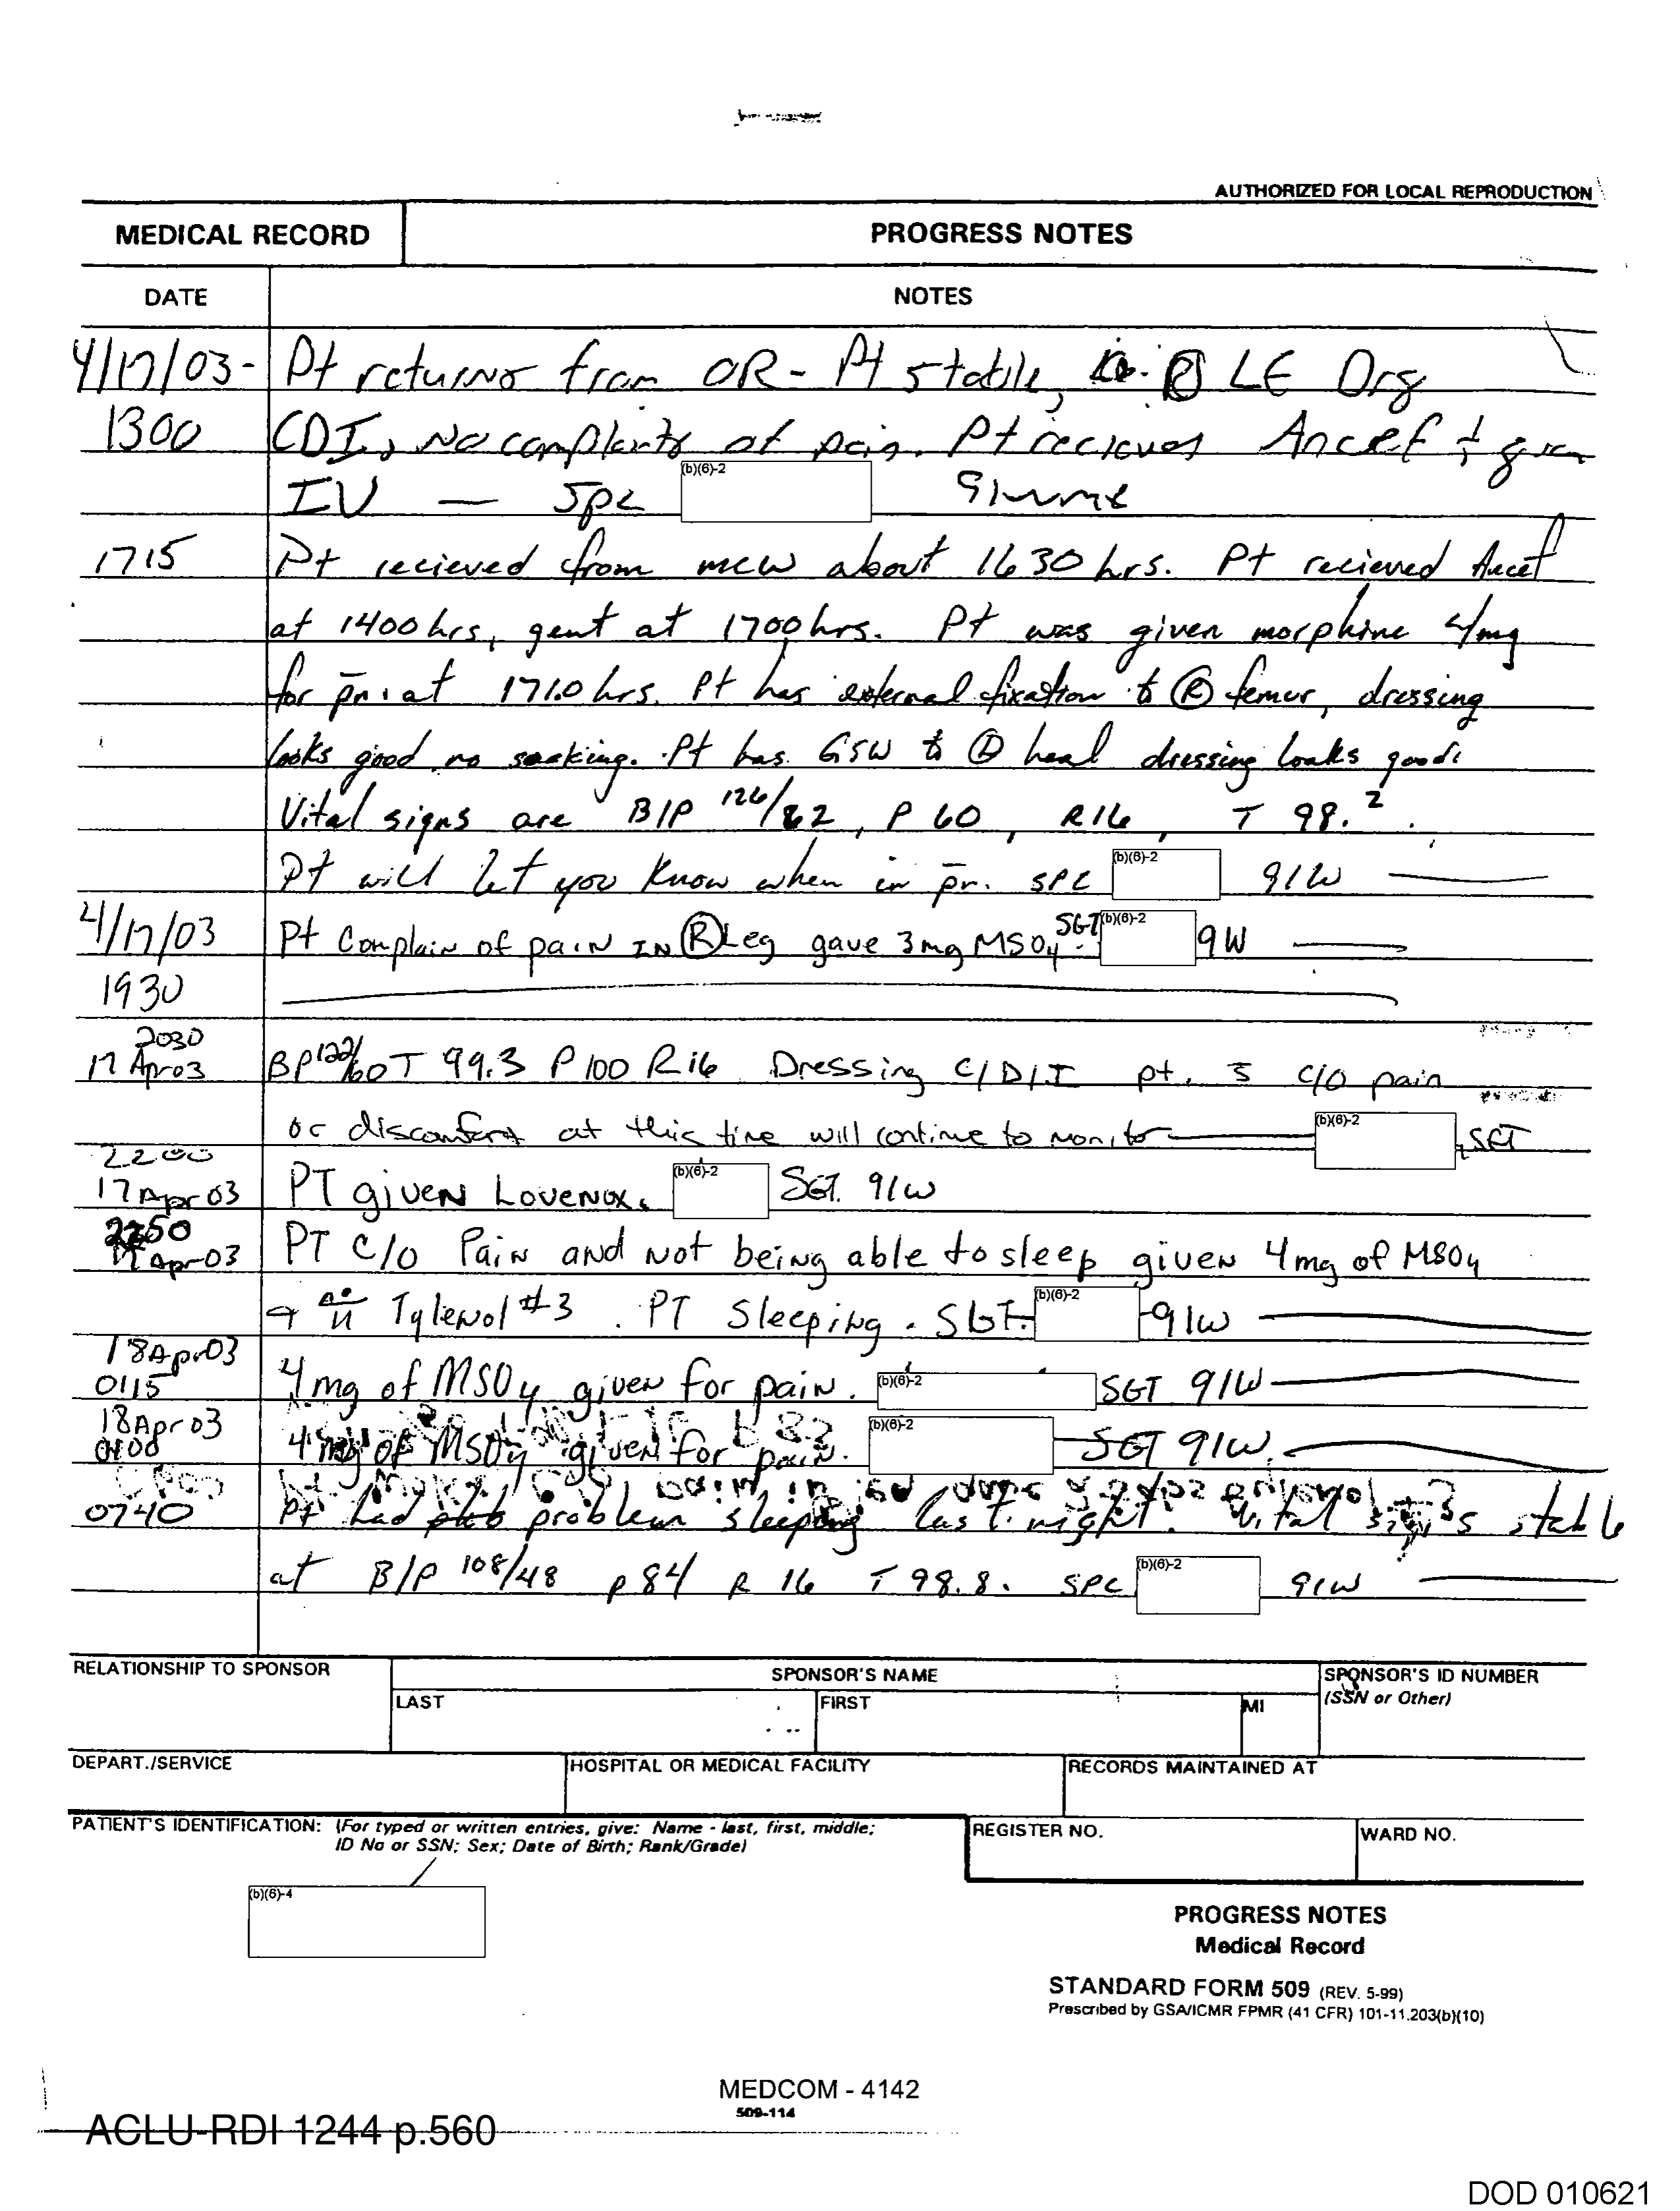 AUTHORIZED FOR LOCAL REPRODUCTION
MEDICAL RECORD PROGRESS NOTES
DATE NOTES
4/17/03- Pt returns from OR - Pt stable, Ⓡ LE Drsg
1300 CDI, No complaints of pain. Pt recieves Ancef 1 gram
IV — SPC (b)(6)-2 91W
1715 Pt recieved from MCW about 1630 hrs. Pt recieved Ancef
at 1400 hrs, gent at 1700 hrs. Pt was given morphine 4mg
for pn. at 1710 hrs. Pt has external fixation to Ⓡ femur, dressing
looks good no soaking. Pt has GSW to heal dressing looks good.
Vital signs are B/P 126/82, P 60, R16, T 98.2.
Pt will let you know when in pn. SPC (b)(6)-2 91W
4/17/03 Pt Complain of pain IN Ⓡ Leg gave 3mg MSO4 SGT (b)(6)-2 9W
1930
2030
17 Apr 03 BP 122/60 T 99.3 P 100 R 16 Dressing C/D/I pt. s̄ c/o pain
or discomfort at this time will continue to monitor (b)(6)-2, SGT
2200
17 Apr 03 PT given Lovenox. (b)(6)-2 SGT. 91W
2250
17 Apr 03 PT c/o Pain and not being able to sleep given 4mg of MSO4
Tylenol #3. PT Sleeping. SGT. (b)(6)-2 91W
18 Apr 03
0115 4mg of MSO4 given for pain. (b)(6)-2 SGT 91W
18 Apr 03
4mg of MSO4 given for pain. (b)(6)-2 SGT 91W.
0740 Pt had problem sleeping last night. Vital signs stable
at B/P 108/48 P 84 R 16 T 98.8. SPC (b)(6)-2 91W
RELATIONSHIP TO SPONSOR SPONSOR'S NAME SPONSOR'S ID NUMBER
LAST FIRST MI (SSN or Other)
DEPART./SERVICE HOSPITAL OR MEDICAL FACILITY RECORDS MAINTAINED AT
PATIENT'S IDENTIFICATION: (For typed or written entries, give: Name - last, first, middle; REGISTER NO. WARD NO.
ID No or SSN; Sex; Date of Birth; Rank/Grade)
(b)(6)-4
PROGRESS NOTES
Medical Record
STANDARD FORM 509 (REV. 5-99)
Prescribed by GSA/ICMR FPMR (41 CFR) 101-11.203(b)(10)
MEDCOM - 4142
509-114
ACLU-RDI 1244 p.560
DOD 010621